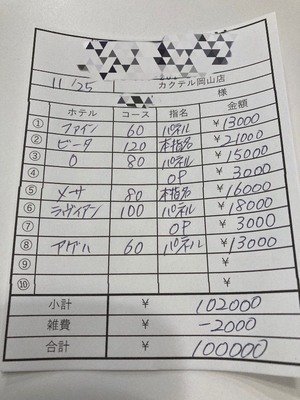 11/25 カクテル岡山店
様
ホテル コース 指名 金額
① ファイン 60 パネル ¥13000
② ピータ 120 本指名 ¥21000
③ O 80 パネル ¥15000
④ OP ¥3000
⑤ メーサ 80 本指名 ¥16000
⑥ ラヴィアン 100 パネル ¥18000
⑦ OP ¥3000
⑧ アゲハ 60 パネル ¥13000
⑨ ¥
⑩ ¥
小計 ¥ 102000
雑費 ¥ -2000
合計 ¥ 100000